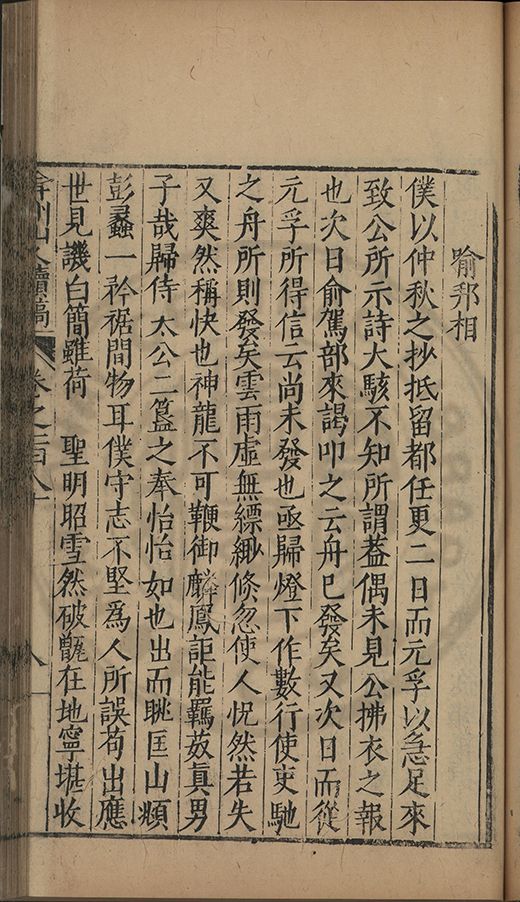 喻邦相
僕以仲秋之抄抵留都任更二日而元孚以急足來
致公所示詩大駭不知所謂葢偶未見公拂衣之報
也次日俞駕部來謁叩之云舟巳發矣又次日而從
元孚所得信云尚未發也亟歸燈下作數行使吏馳
之舟所則發矣雲雨虛無縹緲倐忽使人怳然若失
又爽然稱快也神龍不可鞭御麟鳳詎能羈茲真男
子哉歸侍 太公二簋之奉怡怡如也出而眺匡山頫
彭蠡一衿裾間物耳僕守志不堅爲人所誤苟出應
世見譏白簡雖荷 聖明昭雪然破甑在地寧堪收
弇州山人續稿 卷之一百八十
八